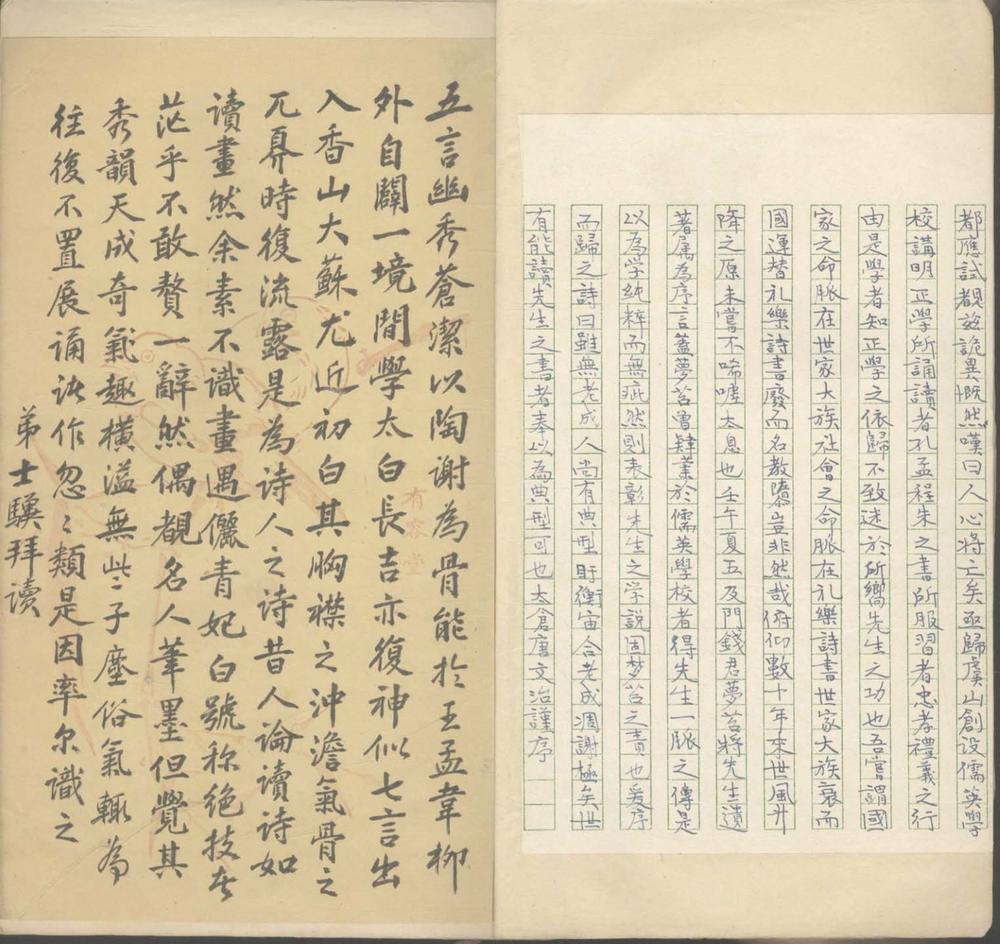 都應試覩茲詭異慨然嘆曰人心將亡矣亟歸虞山創設儒英學
校講明正學所誦讀者孔孟程朱之書所服習者忠孝禮義之行
由是學者知正學之依歸不致迷於所嚮先生之功也吾嘗謂國
家之命脈在世家大族社會之命脈在礼樂詩書世家大族衰而
國運替礼樂詩書廢而名教隳豈非然哉俯仰數十年來世風升
降之原未嘗不唏噓太息也壬午夏五及門錢君夢苕將先生遺
著属為序言蓋夢苕曾肄業於儒英學校者得先生一脈之傳是
以為学純粹而無疵然則表彰先生之学說固梦苕之責也爰序
而歸之詩曰雖無老成人尚有典型盱衡宙合老成凋謝極矣世
有能讀先生之書者奉以為典型可也太倉唐文治謹序
五言幽秀蒼潔以陶謝為骨能於王孟韋柳
外自闢一境間學太白長吉亦復神似七言出
入香山大蘇尤近初白其胸襟之沖澹氣骨之
兀奡時復流露是為詩人之詩昔人論讀詩如
讀畫然余素不識畫遇儷青妃白號称絕技者
茫乎不敢贅一辭然偶覩名人筆墨但覺其
秀韻天成奇氣趣橫溢無些子塵俗氣輒為
往復不置展誦詠作忽忽類是因率尔識之
弟士驥拜讀
有容堂